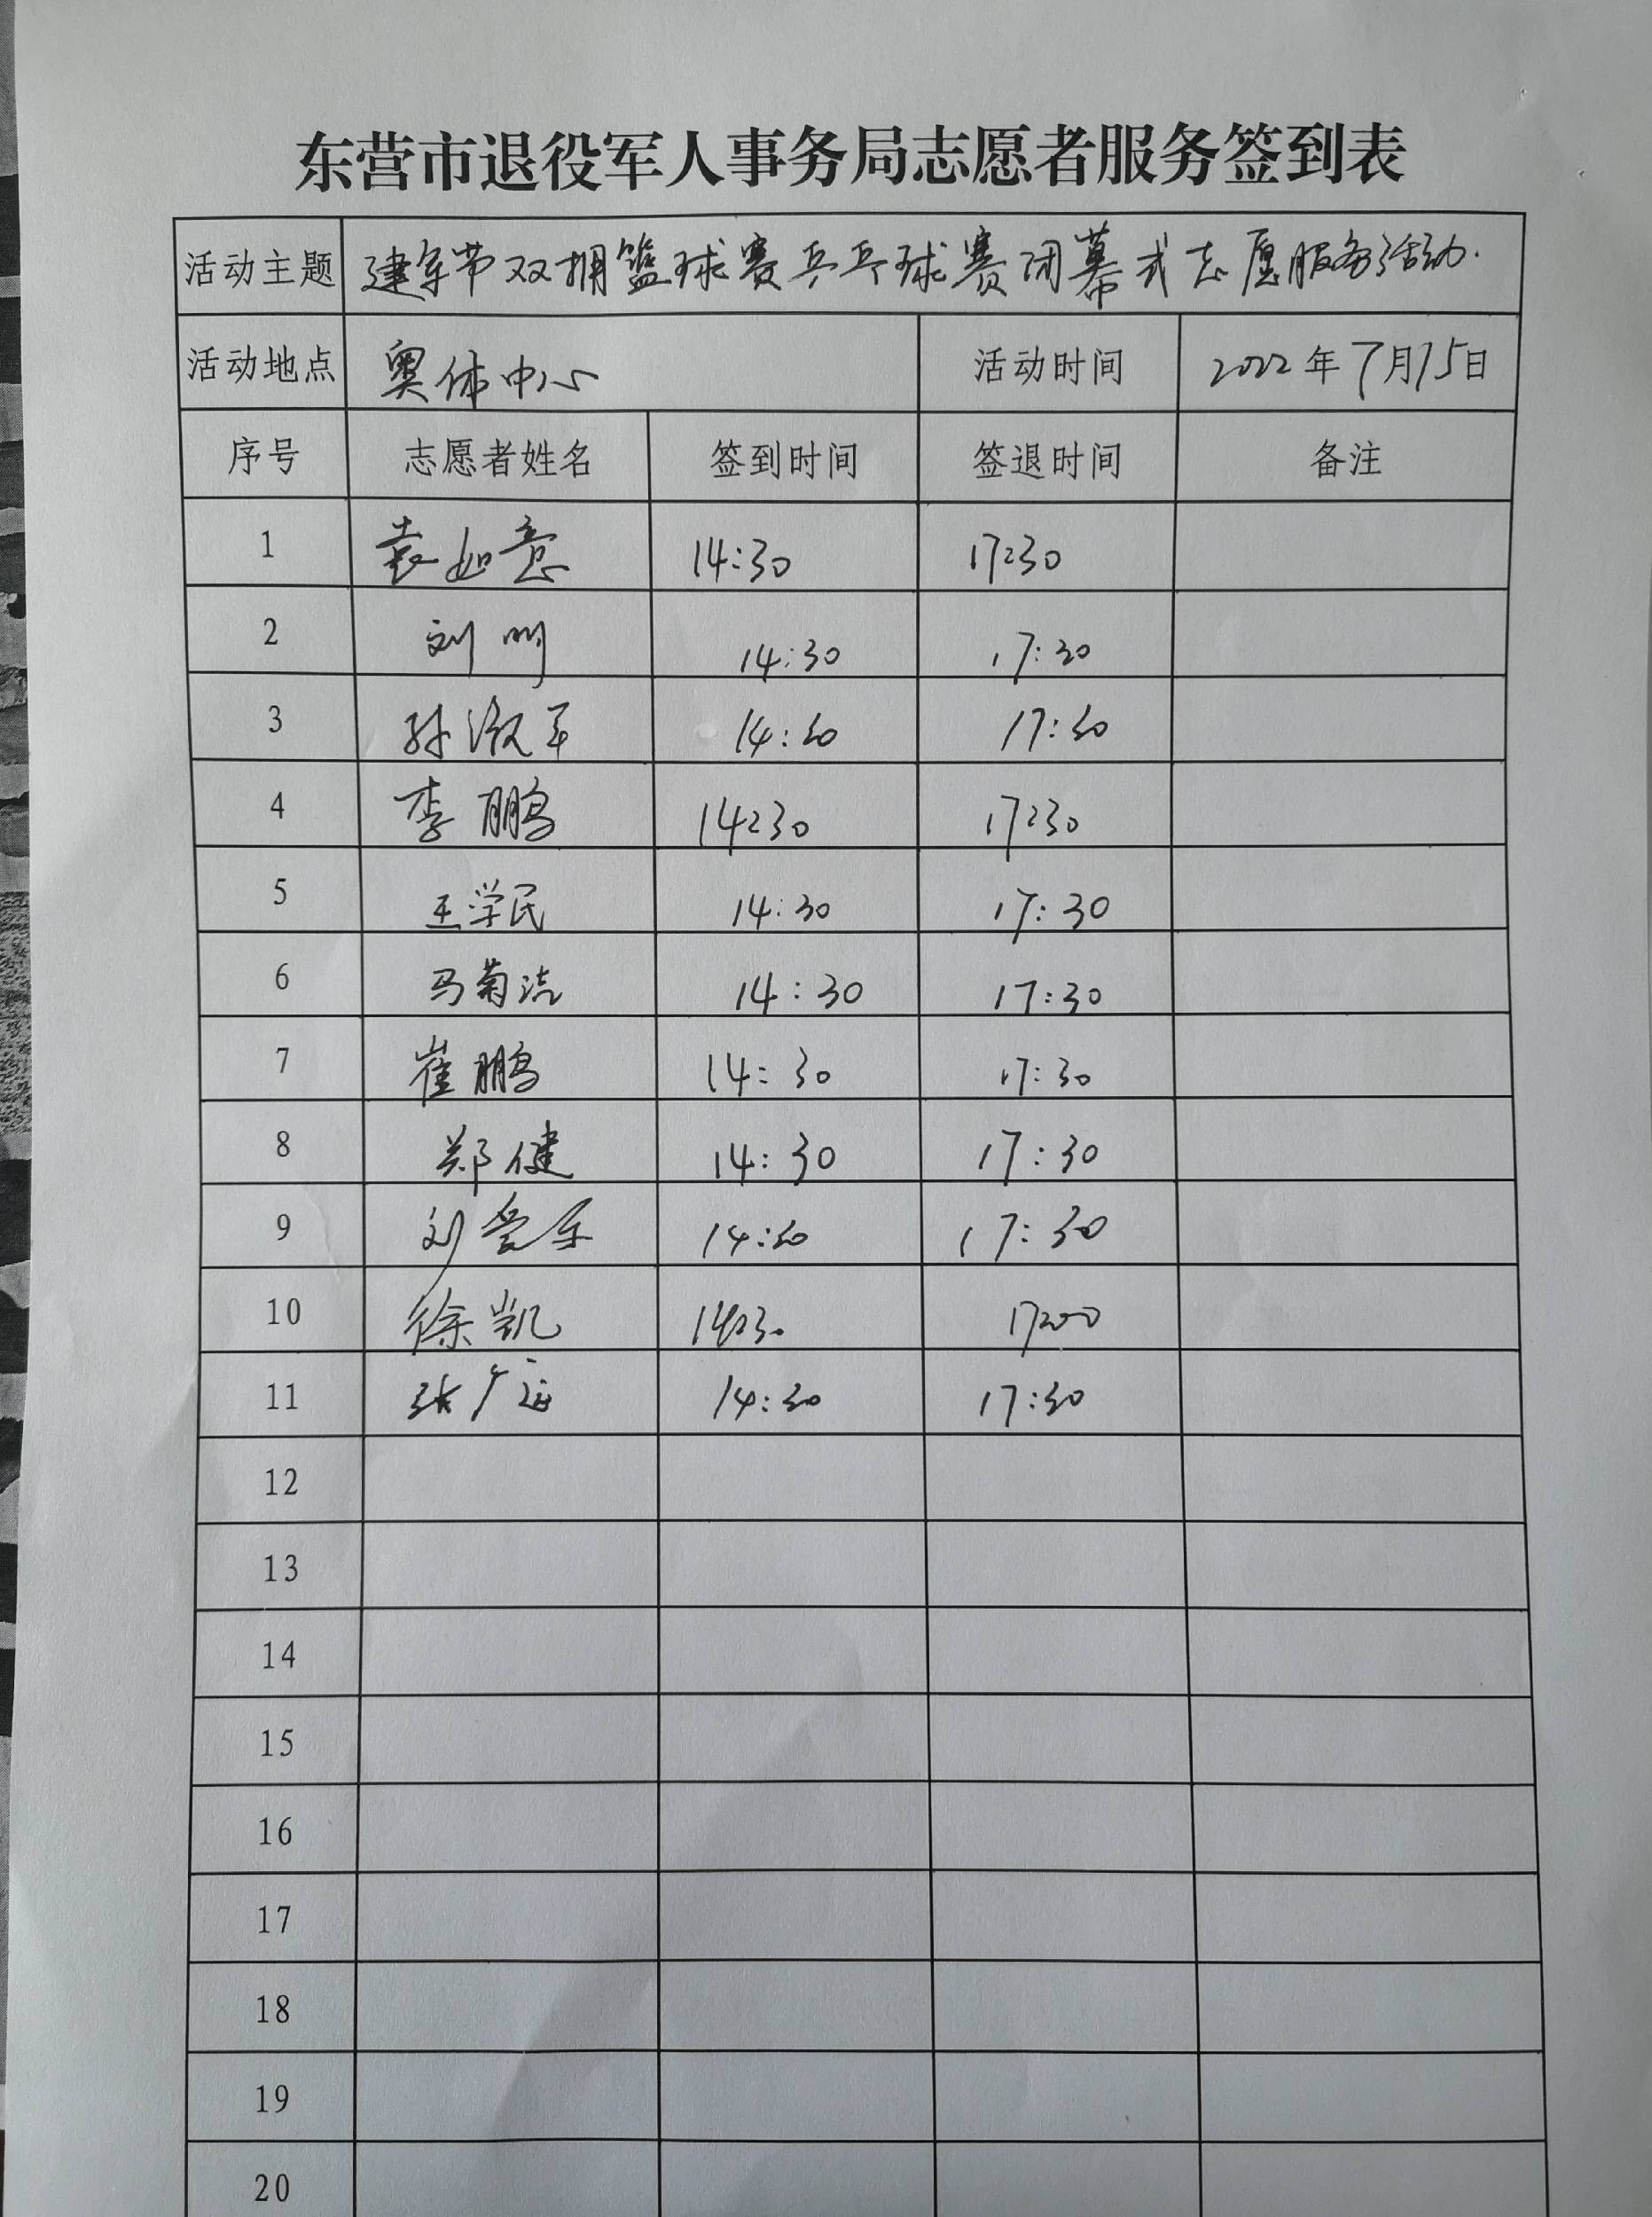 东营市退役军人事务局志愿者服务签到表
活动主题 建军节双拥篮球赛乒乓球赛闭幕式志愿服务活动.
活动地点 奥体中心 活动时间 2022年7月15日
序号 志愿者姓名 签到时间 签退时间 备注
1 袁如意 14:30 17:30
2 刘明 14:30 17:30
3 孙 军 14:30 17:30
4 李鹏 14:30 17:30
5 王学民 14:30 17:30
6 马菊洁 14:30 17:30
7 崔鹏 14:30 17:30
8 郑健 14:30 17:30
9 刘爱东 14:30 17:30
10 徐凯 14:30 17:00
11 张广 14:30 17:30
12
13
14
15
16
17
18
19
20